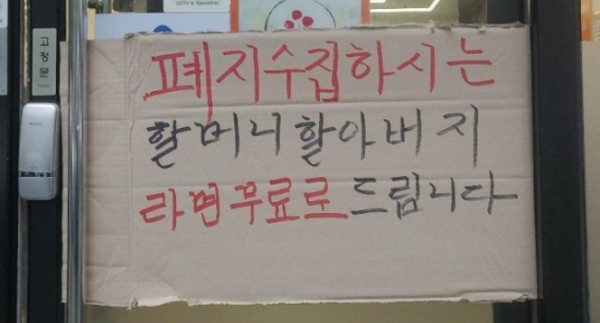 CCTV in Operation
고정문
폐지수집하시는
할머니할아버지
라면무료로드립니다